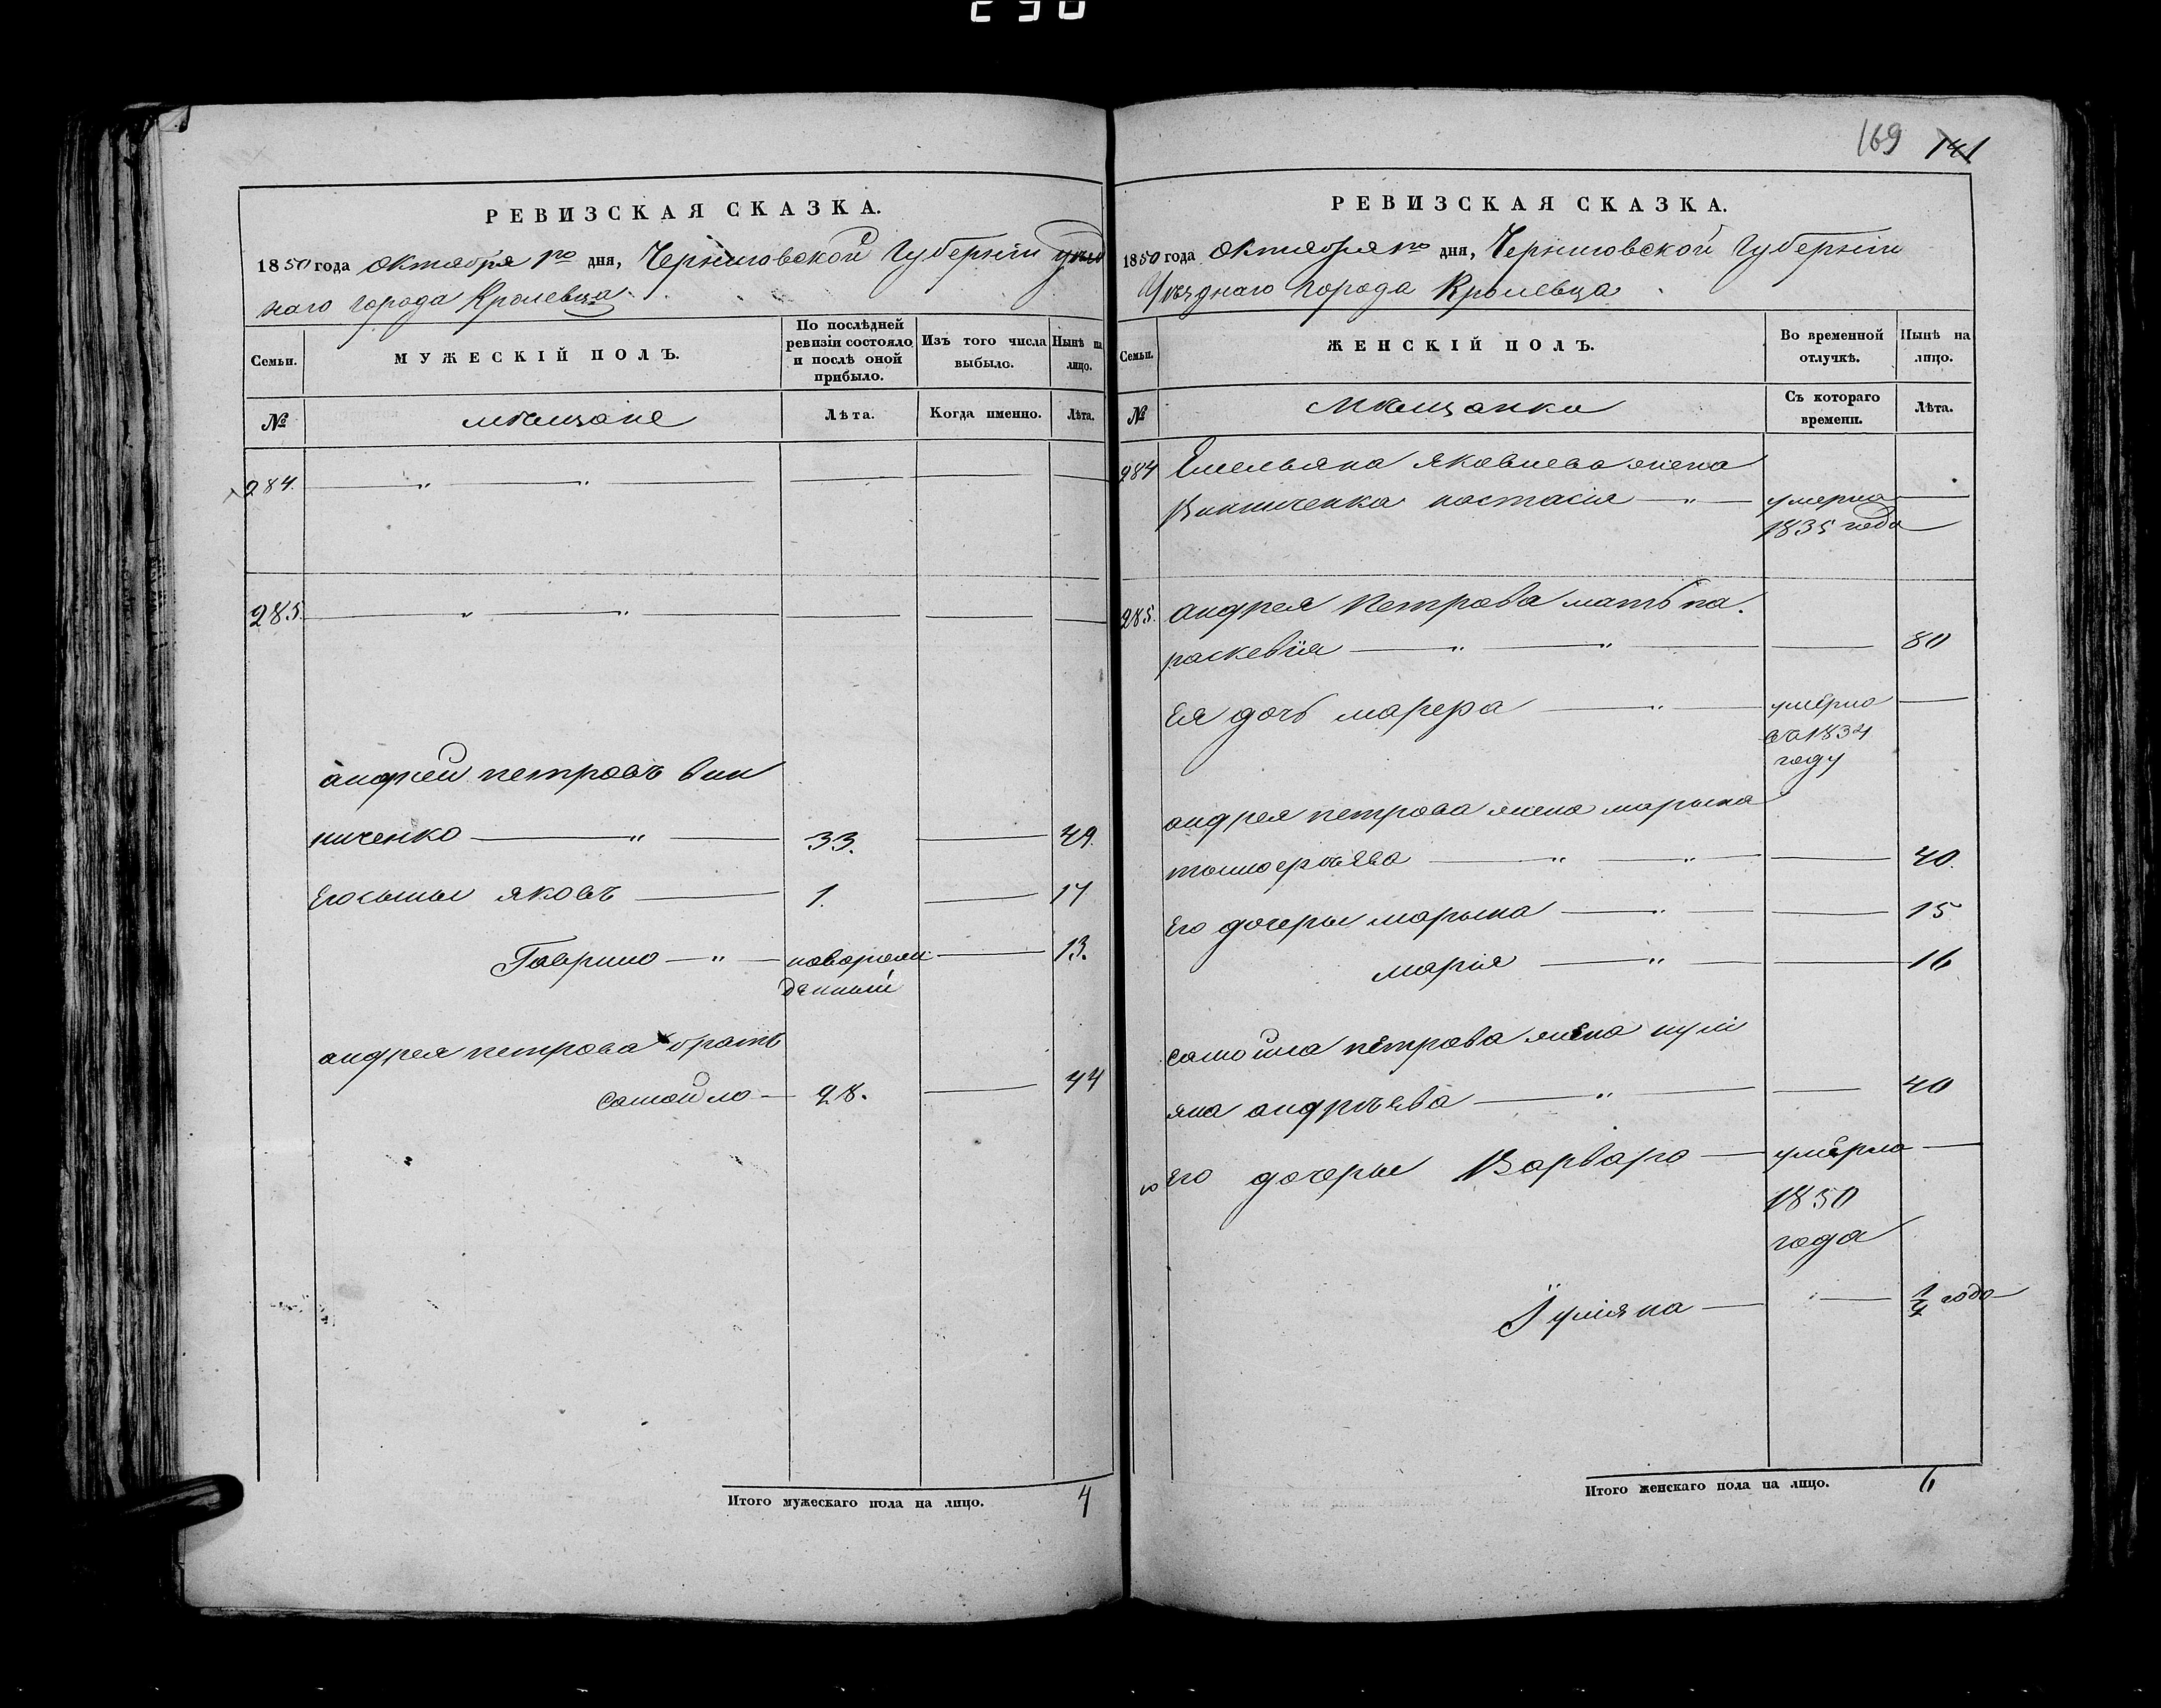 169 141
РЕВИЗСКАЯ СКАЗКА.
1850 года октября 1го дня, Черниговской Губернiи уѣзд
наго города Кролевца
Семьи. МУЖЕСКIЙ ПОЛЪ. По послѣдней ревизiи состояло и послѣ оной прибыло. Изъ того числа выбыло. Нынѣ на лицо.
№ мѣщане Лѣта. Когда именно. Лѣта.
284.
285.
андрей петровъ вин
ниченко — " — 33. — 49.
Его сыны яковъ — 1. — 17
Гаврило — " — новорож — 13.
денный
андрея петрова братъ
самойло — 28. — 44
Итого мужескаго пола на лицо. 4
РЕВИЗСКАЯ СКАЗКА.
1850 года октября 1го дня, Черниговской Губернiи
Уѣзднаго города Кролевца
Семьи. ЖЕНСКIЙ ПОЛЪ. Во временной отлучкѣ. Нынѣ на лицо.
№ мѣщанки Съ котораго времени. Лѣта.
284 Емельяна яковлева жена
Винниченка настасiя — " — умерла —
1835 года
285. андрея Петрова мать па.
раскевiя — " — " — 80
Ея дочь марфра — " — умерла —
въ 1834
году
андрея петрова жена марына
тимофѣева — " — " — 40.
Его дочеры марына — " — 15
марiя — " — 16
самойла петрова жена иули
яна андрѣева — " — 40
Его дочеры Варвара — умерла —
1850
года
Iулiяна — " — 1/4 года
Итого женскаго пола на лицо. 6